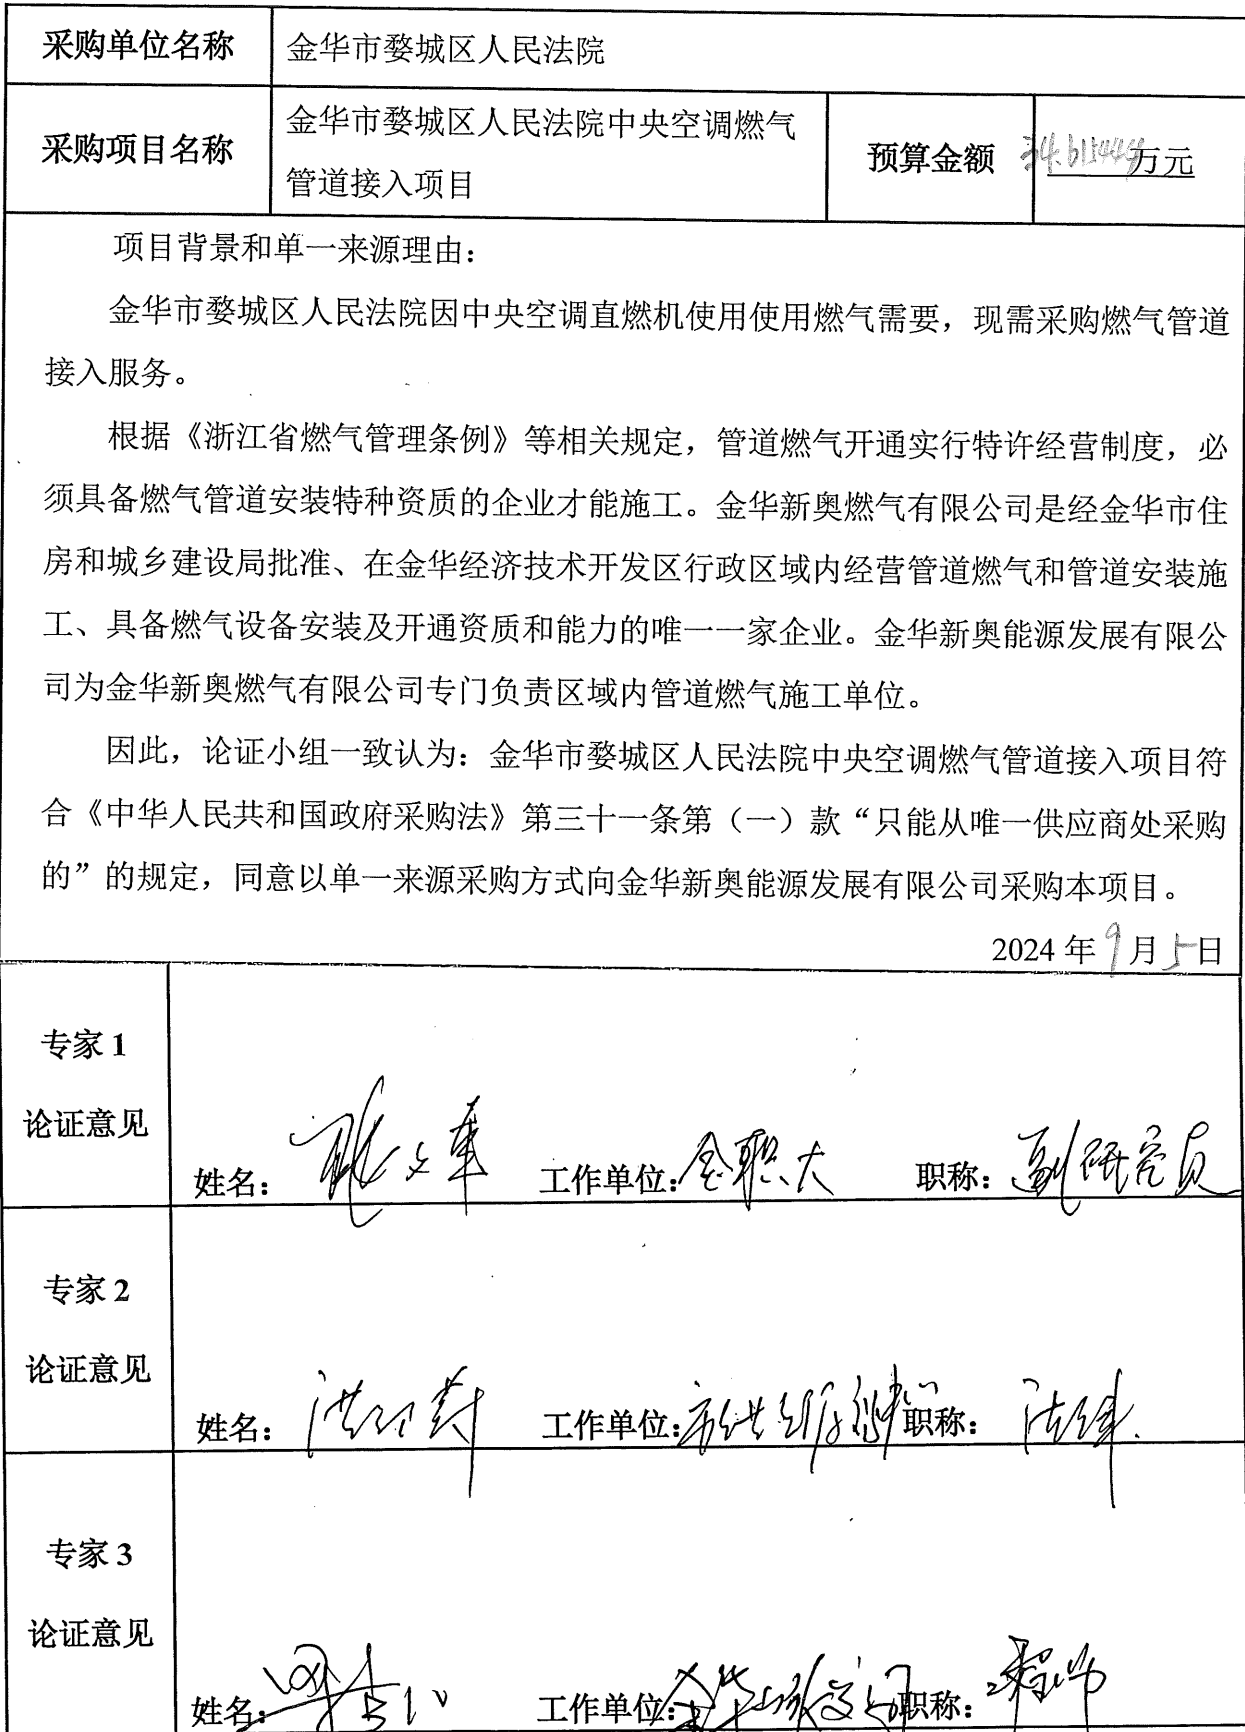 采购单位名称 金华市婺城区人民法院
采购项目名称 金华市婺城区人民法院中央空调燃气
管道接入项目 预算金额 34.615444万元
项目背景和单一来源理由：
金华市婺城区人民法院因中央空调直燃机使用使用燃气需要，现需采购燃气管道
接入服务。
根据《浙江省燃气管理条例》等相关规定，管道燃气开通实行特许经营制度，必
须具备燃气管道安装特种资质的企业才能施工。金华新奥燃气有限公司是经金华市住
房和城乡建设局批准、在金华经济技术开发区行政区域内经营管道燃气和管道安装施
工、具备燃气设备安装及开通资质和能力的唯一一家企业。金华新奥能源发展有限公
司为金华新奥燃气有限公司专门负责区域内管道燃气施工单位。
因此，论证小组一致认为：金华市婺城区人民法院中央空调燃气管道接入项目符
合《中华人民共和国政府采购法》第三十一条第（一）款“只能从唯一供应商处采购
的”的规定，同意以单一来源采购方式向金华新奥能源发展有限公司采购本项目。
2024年9月5日
专家1
论证意见
姓名： 工作单位：金职大 职称：副研究员
专家2
论证意见
姓名： 工作单位： 职称：
专家3
论证意见
姓名： 工作单位： 职称：